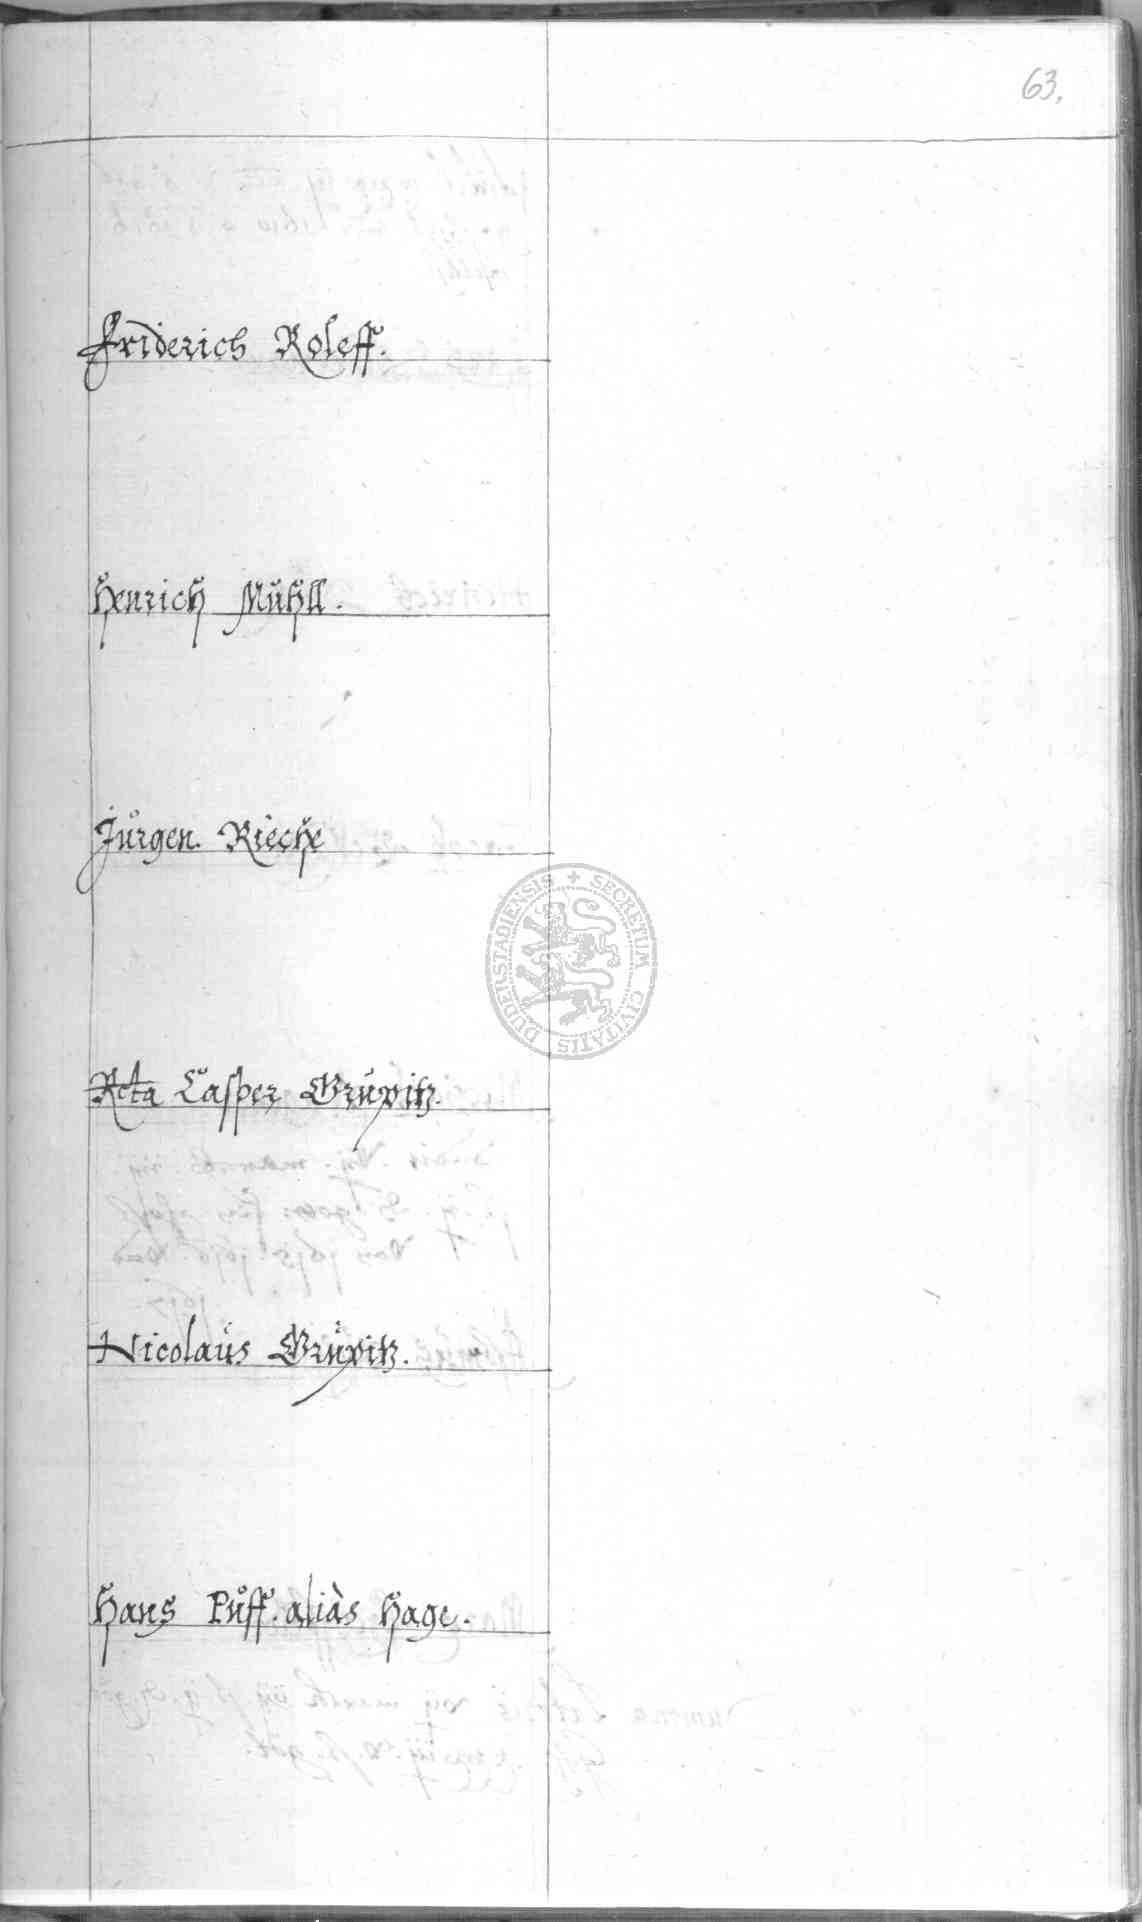 63.
Friderich Roleff.
Henrich Mühll.
Jürgen. Rieche
Casper Grüpitz.
Nicolaüs Grüpitz.
Hans Püff. aliàs Hage.
SECRETUM CIVITATIS DUDERSTADIENSIS